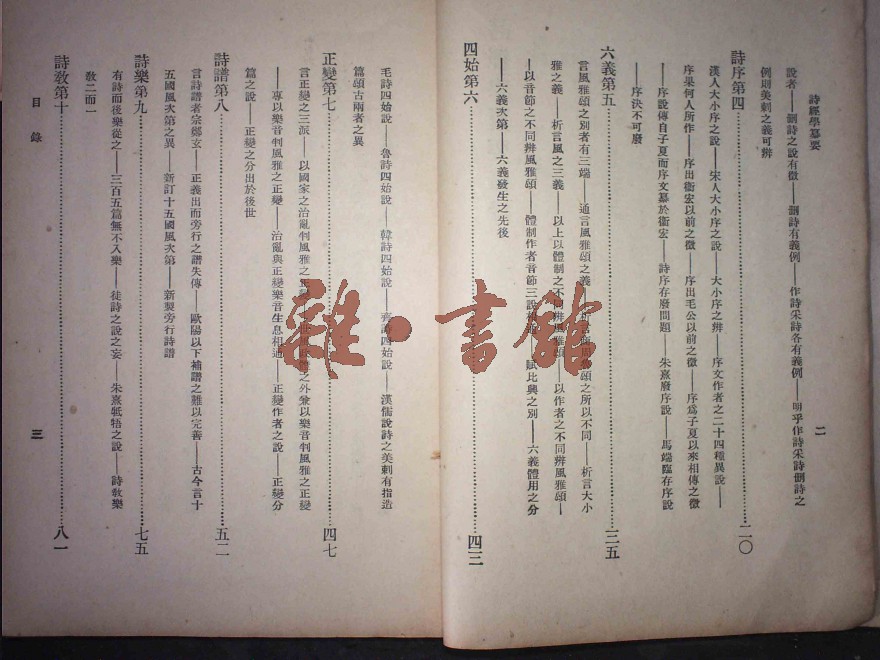 詩經學纂要
二
說者——刪詩之說有徵——刪詩有義例——作詩采詩各有義例——明乎作詩采詩刪詩之
例則美刺之義可辨
詩序第四……二〇
漢人大小序之說——宋人大小序之說——大小序之辨——序文作者之二十四種異說——
序果何人所作——序出衛宏以前之徵——序出毛公以前之徵——序爲子夏以來相傳之徵
——序說傳自子夏而序文纂於衛宏——詩序存廢問題——朱熹廢序說——馬端臨存序說
——序決不可廢
六義第五……三五
言風雅頌之別者有三端——通言風雅頌之義——析言
頌之所以不同——析言大小
雅之義——析言風之三義——以上以體制之不同辨風雅頌——以作者之不同辨風雅頌—
—以音節之不同辨風雅頌——體制作者音節三說
賦比興之別——六義體用之分
——六義次第——六義發生之先後
四始第六……四三
毛詩四始說——魯詩四始說——韓詩四始說——齊詩四始說——漢儒說詩之美刺有指造
篇頌古兩者之異
正變第七……四七
言正變之三派——以國家之治亂判風雅之正變
之外兼以樂音判風雅之正變
——專以樂音判風雅之正變——治亂與正變樂音生息相通——正變作者之說——正變分
篇之說——正變之分出於後世
詩譜第八……五二
言詩譜者宗鄭玄——正義出而旁行之譜失傳——歐陽以下補譜之難以完善——古今言十
五國風次第之異——新訂十五國風次第——新製旁行詩譜
詩樂第九……七五
有詩而後樂從之——三百五篇無不入樂——徒詩之說之妄——朱熹牴牾之說——詩敎樂
敎二而一
詩敎第十……八一
目錄
三
雜·書館